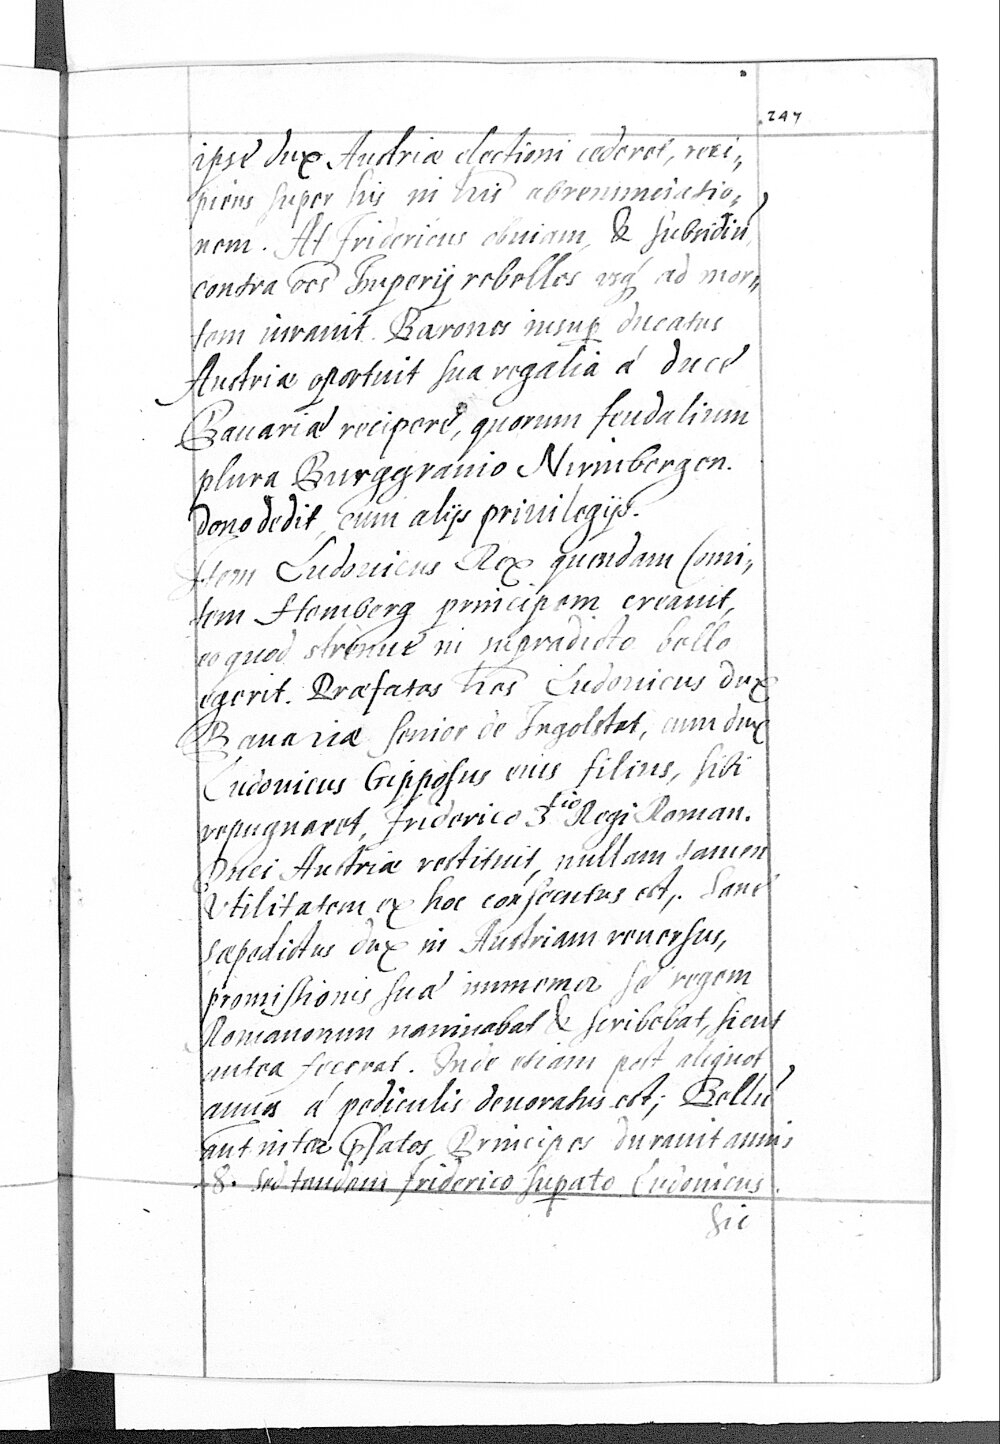 247
ipsé dux Austriæ electioni cederet, reci„
piens super his in lris abrenunciatio„
nem. At Fridericus obuiam, & subsidiũ
contra oes Imperij rebelles vsq́ ad mor„
tem iurauit. Barones insup ducatus
Austriæ oportuit sua regalia á ducé
Bauariæ reciperé, quorum feudalium
plura Burggrauio Nirmbergen.
dono dedit, cum alijs priuilegijs.
Item Ludouicus Rex quendam Comi„
tem Hemberg principem creauit,
eo quod strénué in supradicto bello
egerit. Præfatas lras Ludouicus dux
Bauariæ senior de Ingolstat, cum dux
Ludouicus Gipposus eius filius, sibi
repugnaret, Friderico 3tio Regi Roman.
Duci Austriæ restituit, nullam tamen
vtilitatem ex hoc consecutus est,. Sané
sæpedictus dux in Austriam reuersus,
promissionis suæ immemor sé regem
Romanorum nominabat & scribebat, sicut
antea fecerat. Inde etiam post aliquot
annos á pediculis deuoratus est; Bellũ
aut inter pfatos Principes durauit annis
8. sed tandem Friderico supato Ludouicus
sic